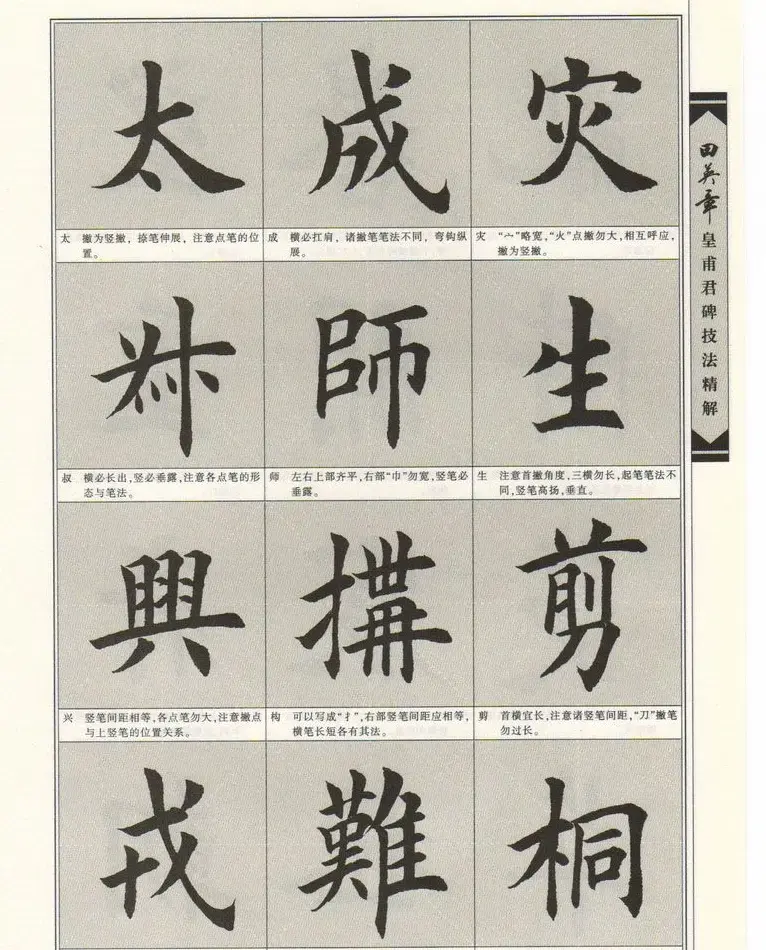 太 成 灾
太 撇为竖撇，捺笔伸展，注意点笔的位
置。
成 横必扛肩，诸撇笔笔法不同，弯钩纵
展。
灾 “宀”略宽，“火”点撇勿大，相互呼应，
撇为竖撇。
叔 師 生
叔 横必长出，竖必垂露，注意各点笔的形
态与笔法。
师 左右上部齐平，右部“巾”勿宽，竖笔必
垂露。
生 注意首撇角度，三横勿长，起笔笔法不
同，竖笔高扬，垂直。
興 搆 剪
兴 竖笔间距相等，各点笔勿大，注意撇点
与上竖笔的位置关系。
构 可以写成“扌”，右部竖笔间距应相等，
横笔长短各有其法。
剪 首横宜长，注意诸竖笔间距，“刀”撇笔
勿过长。
戎 難 桐
田英章皇甫君碑技法精解